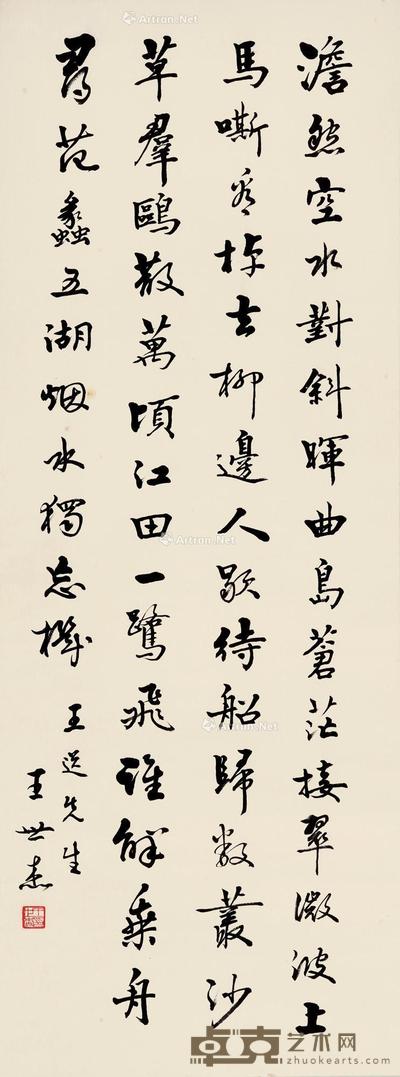 澹然空水對斜暉曲島蒼茫接翠微波上
馬嘶看棹去柳邊人歇待船歸數叢沙
草羣鷗散萬頃江田一鷺飛誰解乘舟
尋范蠡五湖烟水獨忘機
王選先生
王世杰
Artron.Net
卓克艺术网
zhuokearts.com